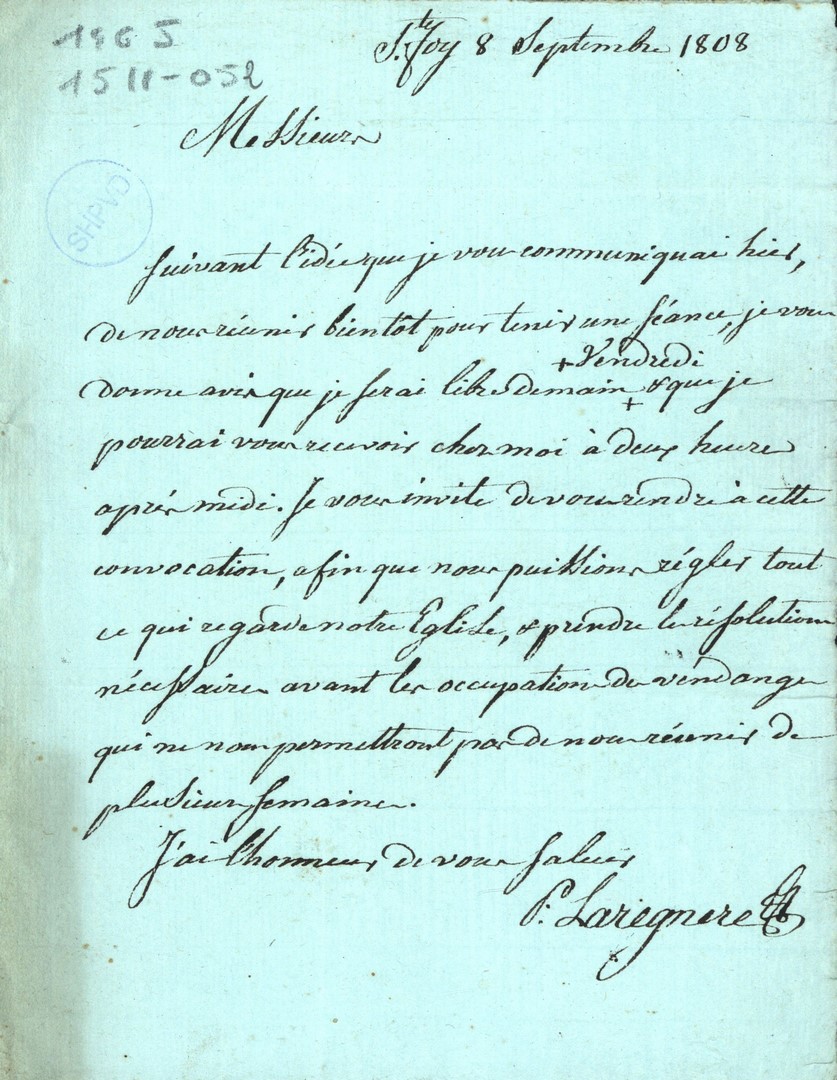 196 J
1511-052
S.te foy 8 Septembre 1808
Messieurs
SHPVD
Suivant l'idée que je vous communiquai hier,
de nous réunir bientôt pour tenir une séance, je vous
+ Vendredi
donne avis que je serai libre demain + & que je
pourrai vous recevoir chez moi à deux heures
après midi. Je vous invite de vous rendre à cette
convocation, afin que nous puissions régler tout
ce qui regarde notre Eglise, & prendre les résolutions
nécessaires avant les occupations des vendanges
qui ne nous permettront pas de nous réunir de
plusieurs semaines.
J'ai l'honneur de vous saluer
P. Laregnere